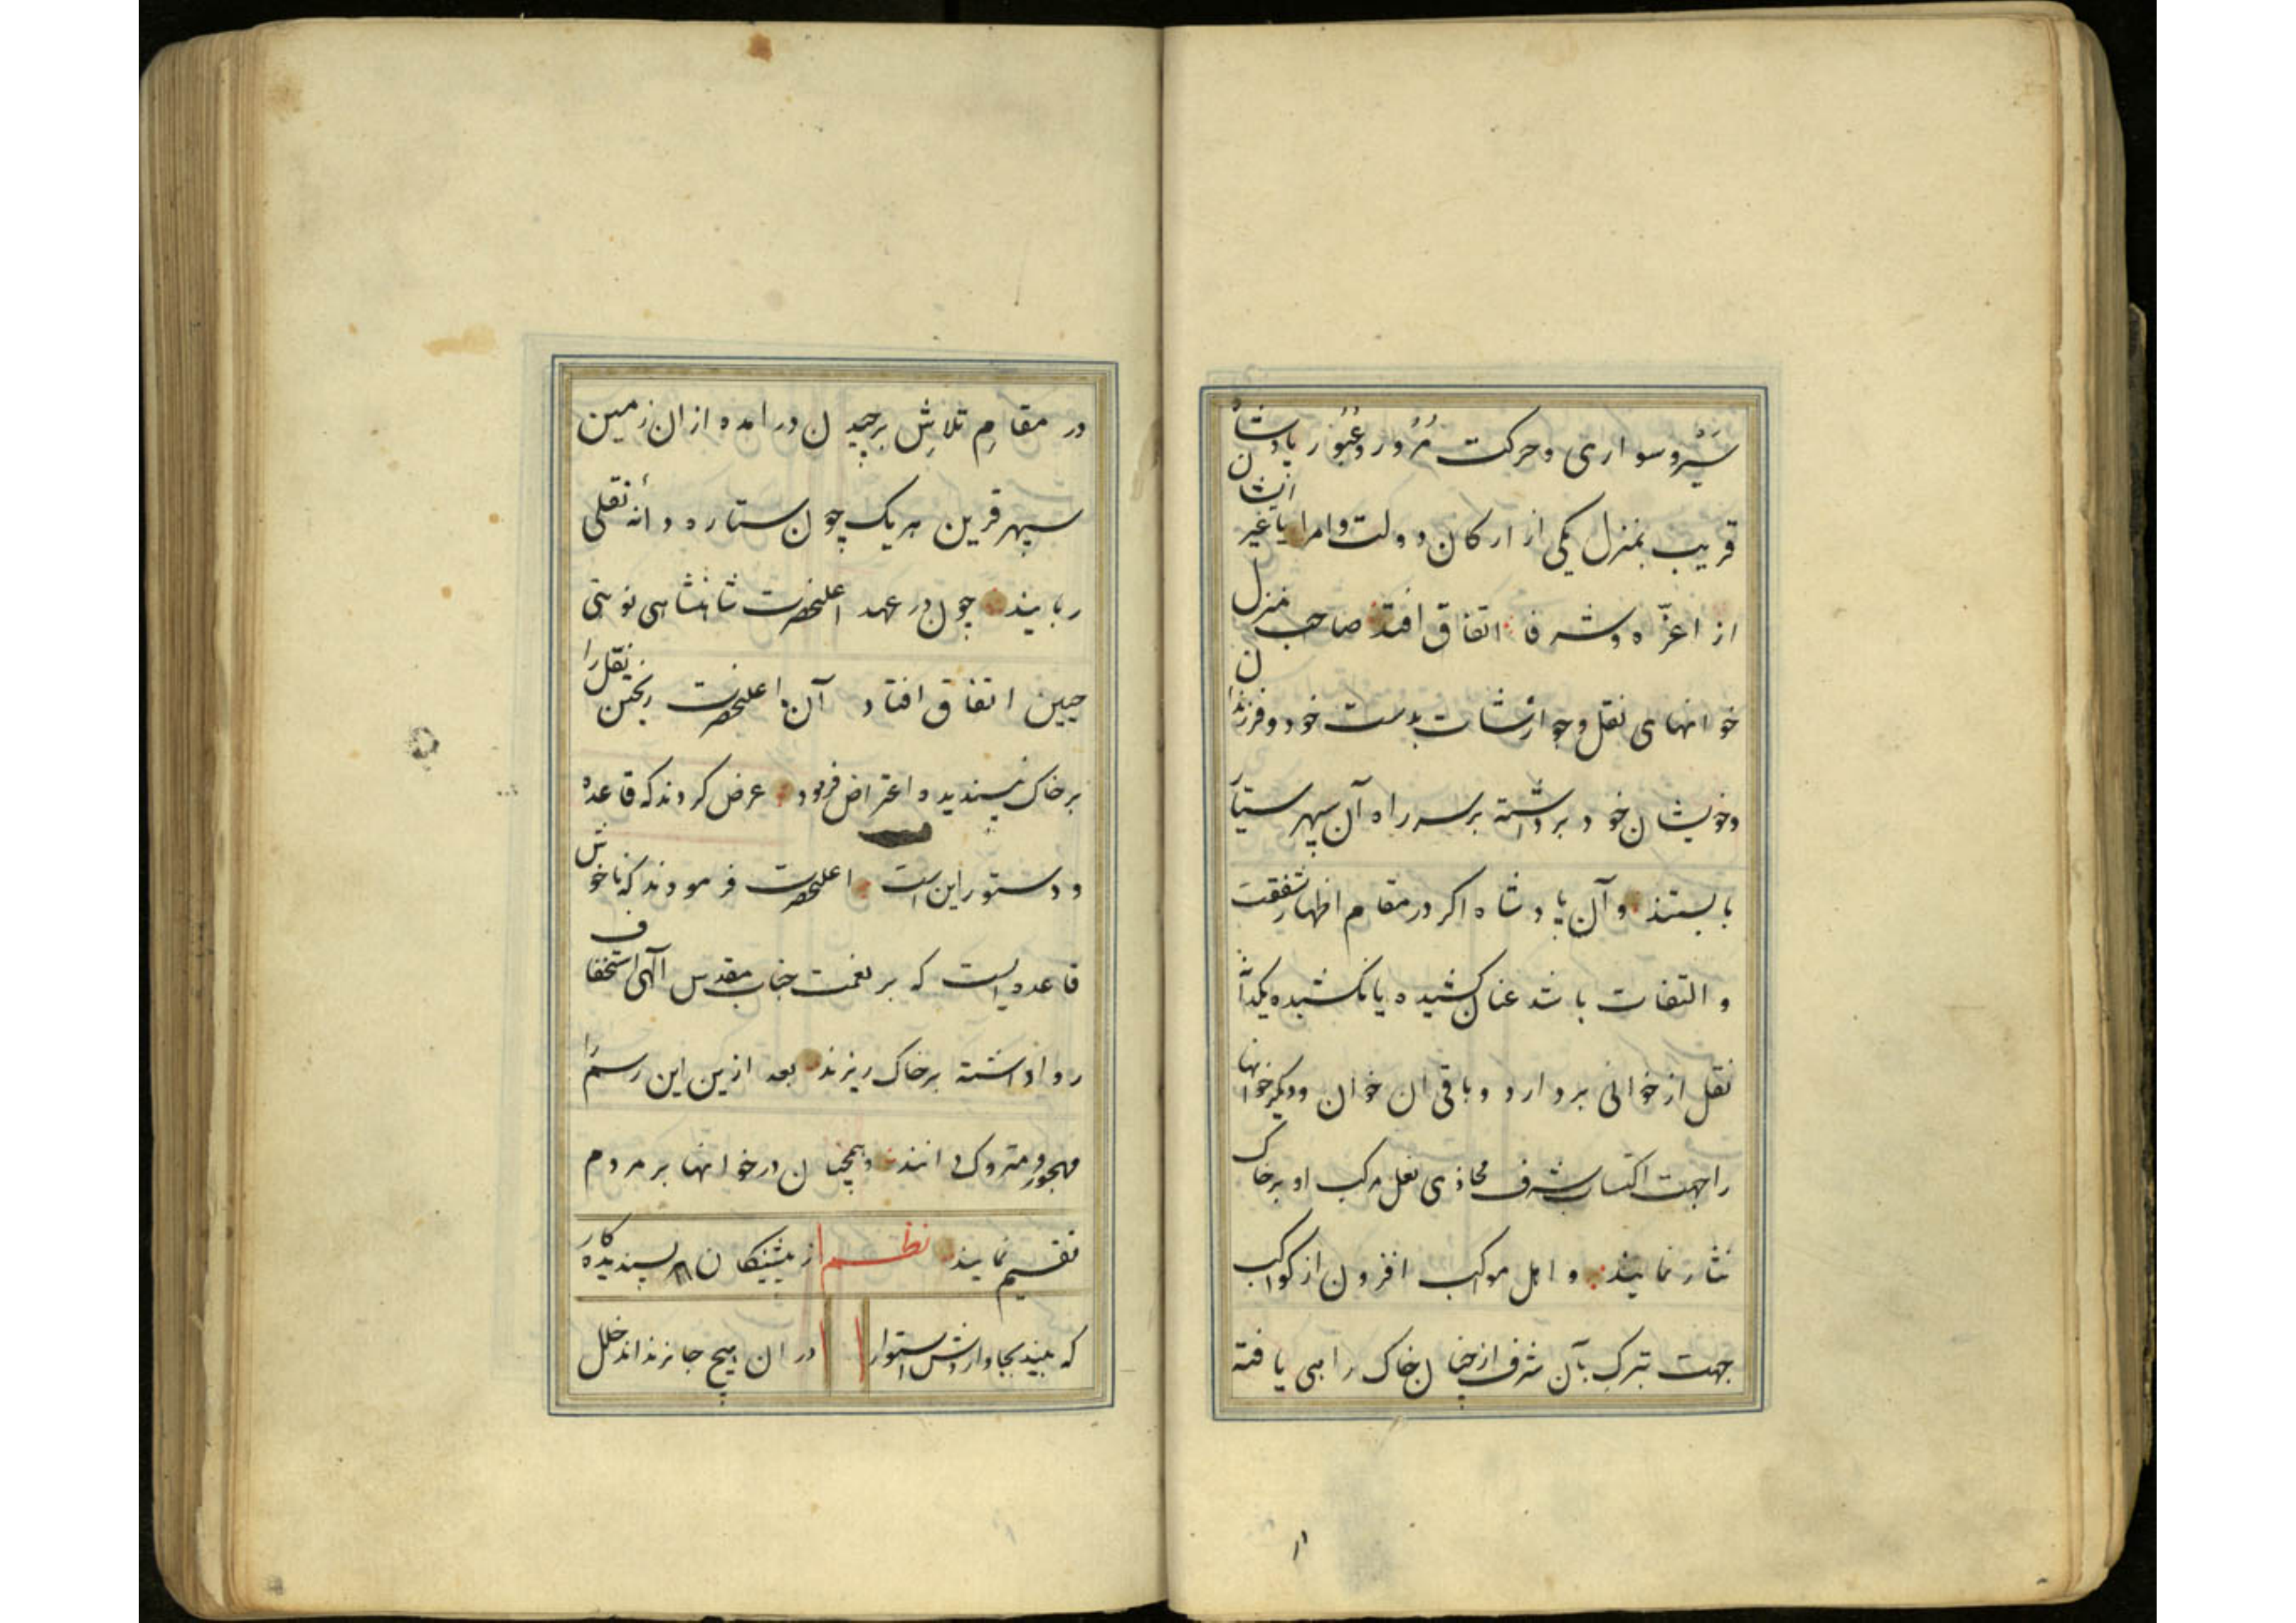 سیر و سواری و حرکت مُرور و عُبُور پادشاهان
قریب بمنزل یکی از ارکان دولت و امرا یا غیر ایشان
از اعزّه و شرفا اتفاق افتد صاحب منزل
خوانهای نقل و جوارشات بدست خود و فرزندان
و خویشان خود برداشته بر سر راه آن سپهر ستیار
بایستند و آن پادشاه اکر در مقام اظهار شفقت
و التفات باشد عنان کشیده یا نکشیده یکدانه
نقل از خوانی بردارد و باقی ان خوان و دیکر خوانها
را جهت اکتساب شرف محاذی نعل مرکب او بر خاک
نثار نمایند و اهل موکب افزون از کواکب
جهت تبرک بآن شرف از چنان خاک راهی یافته
در مقامِ تلاشِ برچیدن در امده از ان زمین
سپهر قرین هر یک چون ستاره دانهٔ نقلی
ربایند چون در عهد اعلیحضرت شاهنشاهی نوبتی
چنین اتفاق افتاد آن اعلیحضرت ریختن نقل را
بر خاک نپسندیده اعتراض فرمود عرض کردند که قاعده
و دستور این است اعلیحضرت فرمودند که ناخوش
قاعده ایست که بر نعمت جناب مقدس آلهی استخفاف
روا داشته بر خاک ریزند بعد ازین این رسم را
مهجور و متروک دانند و همچنان در خوانها بر مردم
تقسیم نمایند نظم از پیشینکان هر پسندیده کار
که بیند بجا و اردش استوار در ان هیچ جا نزنداند خلل